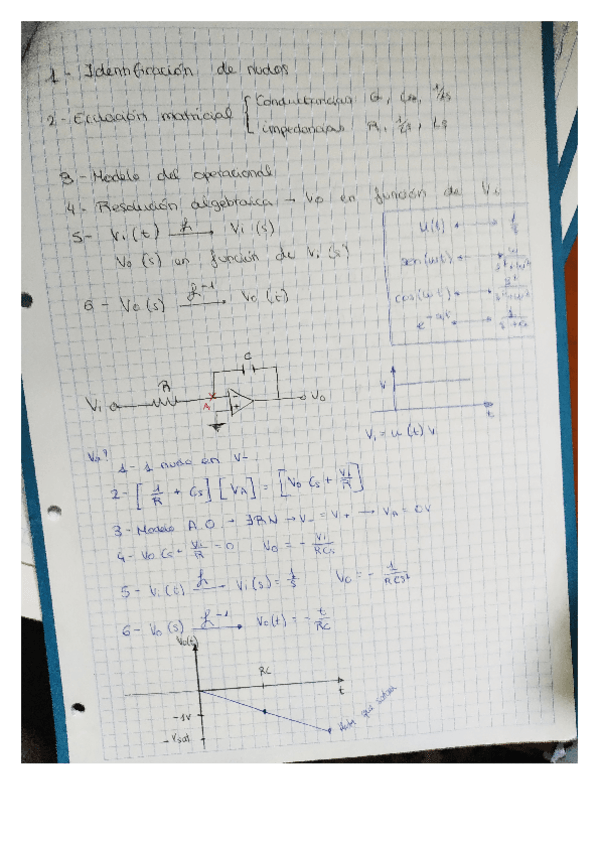 1- Identificación de nudos
2- Ecuación matricial { Conductancias G, Cs, 1/Ls
impedancias R, 1/Cs, Ls
3- Modelo del operacional
4- Resolución algebraica → Vo en función de Vi
5- Vi(t) ℒ→ Vi(s)
Vo(s) en función de Vi(s)
6- Vo(s) ℒ⁻¹→ Vo(t)
u(t) ↔ 1/s
sen(ωt) ↔ ω/(s²+ω²)
cos(ωt) ↔
e^-at ↔
C
R
Vi
A
-
+
Vo
V
t
Vi = u(t) V
Vo?
1- 1 nudo en V-
2- [1/R + Cs] [VA] = [Vo Cs + Vi/R]
3- Modelo A.O → ∃RN → V- = V+ → VA = 0V
4- Vo Cs + Vi/R = 0 Vo = - Vi/RCs
5- Vi(t) ℒ→ Vi(s) = 1/s Vo = - 1/RCs²
6- Vo(s) ℒ⁻¹→ Vo(t) = - t/RC
Vo(t)
RC
t
-1V
-Vsat
Hasta que satura